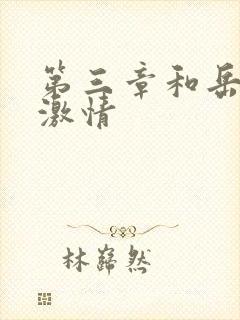 第三章和岳
激情
林巋然